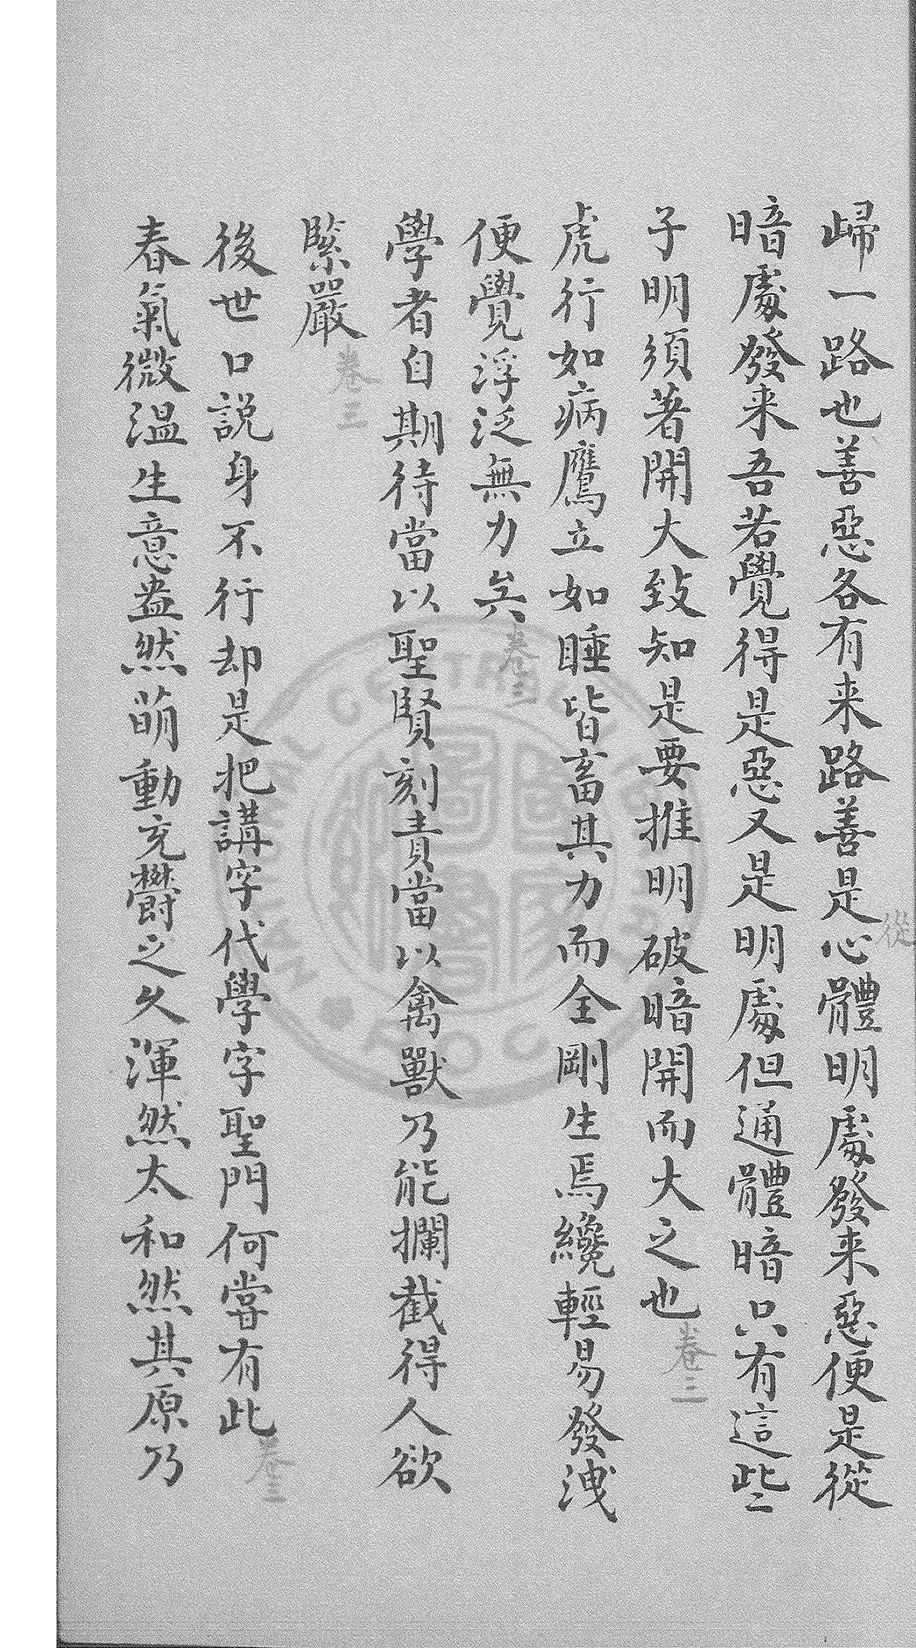 歸一路也善惡各有来路善是心體明處發来惡便是從
從
暗處發来吾若覺得是惡又是明處但通體暗只有這些
子明須著開大致知是要推明破暗開而大之也
卷三
虎行如病鷹立如睡皆畜其力而全剛生焉纔輕易發洩
便覺浮泛無力矣
卷三
學者自期待當以聖賢刻責當以禽獸乃能攔截得人欲
緊嚴
卷三
後世口説身不行却是把講字代學字聖門何嘗有此
卷三
春氣微溫生意盎然萌動充欎之久渾然太和然其原乃